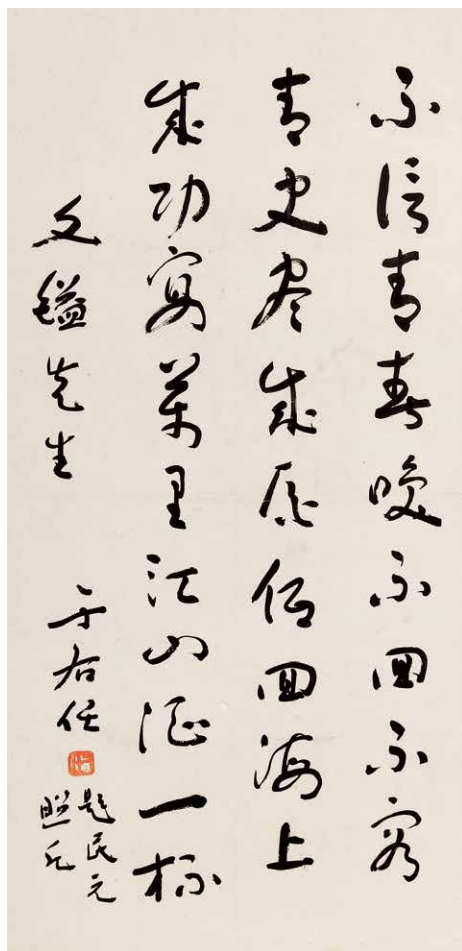 不信青春喚不回不容
青史盡成灰低回海上
成功宴萬里江山酒一杯
文鎰先生
于右任
題民元
照片